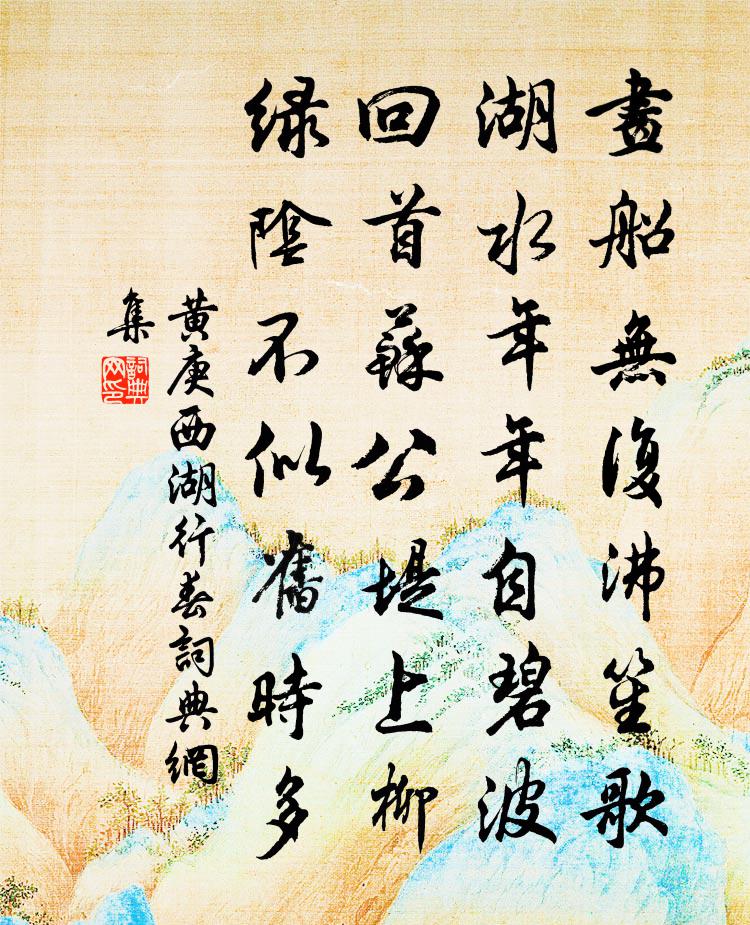 畫船無復沸笙歌
湖水年年自碧波
回首蘇公堤上柳
緑陰不似舊時多
黄庚西湖行春詞典網
集
詞典
网印